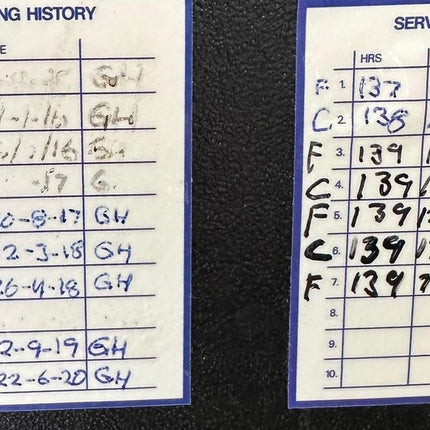 NG HISTORY
E
GH
-1-16 GH
/1/16 G
-17 G.
0-8-17 GH
2-3-18 GH
26-4-18 GH
2-9-19 GH
22-6-20 GH
SERV
HRS
F 1. 137
C 2. 138
F 3. 139
C 4. 139
F 5. 139
C 6. 139
F 7. 139
8.
9.
10.